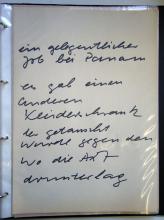 ein gelegentlicher
Job bei Panam
es gab einen
anderen
Kleiderschrank
der getauscht
wurde gegen den
wo die Axt
drunterlag